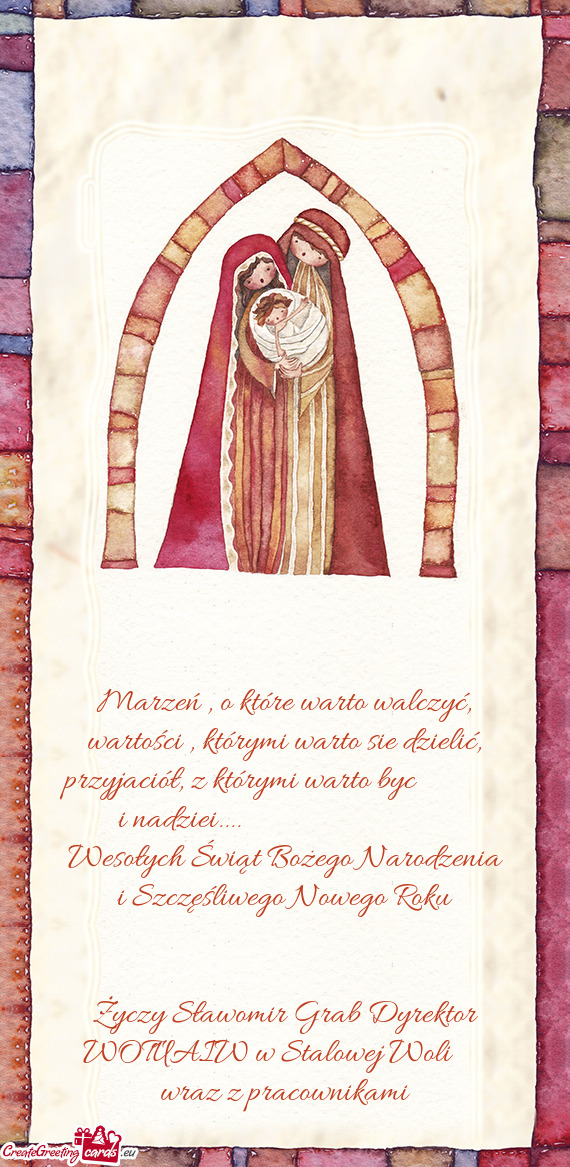 Marzeń , o które warto walczyć,
wartości , którymi warto sie dzielić,
przyjaciół, z którymi warto byc
i nadziei....
Wesołych Świąt Bożego Narodzenia
i Szczęśliwego Nowego Roku
Życzy Sławomir Grab Dyrektor
WOTUAIW w Stalowej Woli
wraz z pracownikami
CreateGreeting cards .eu